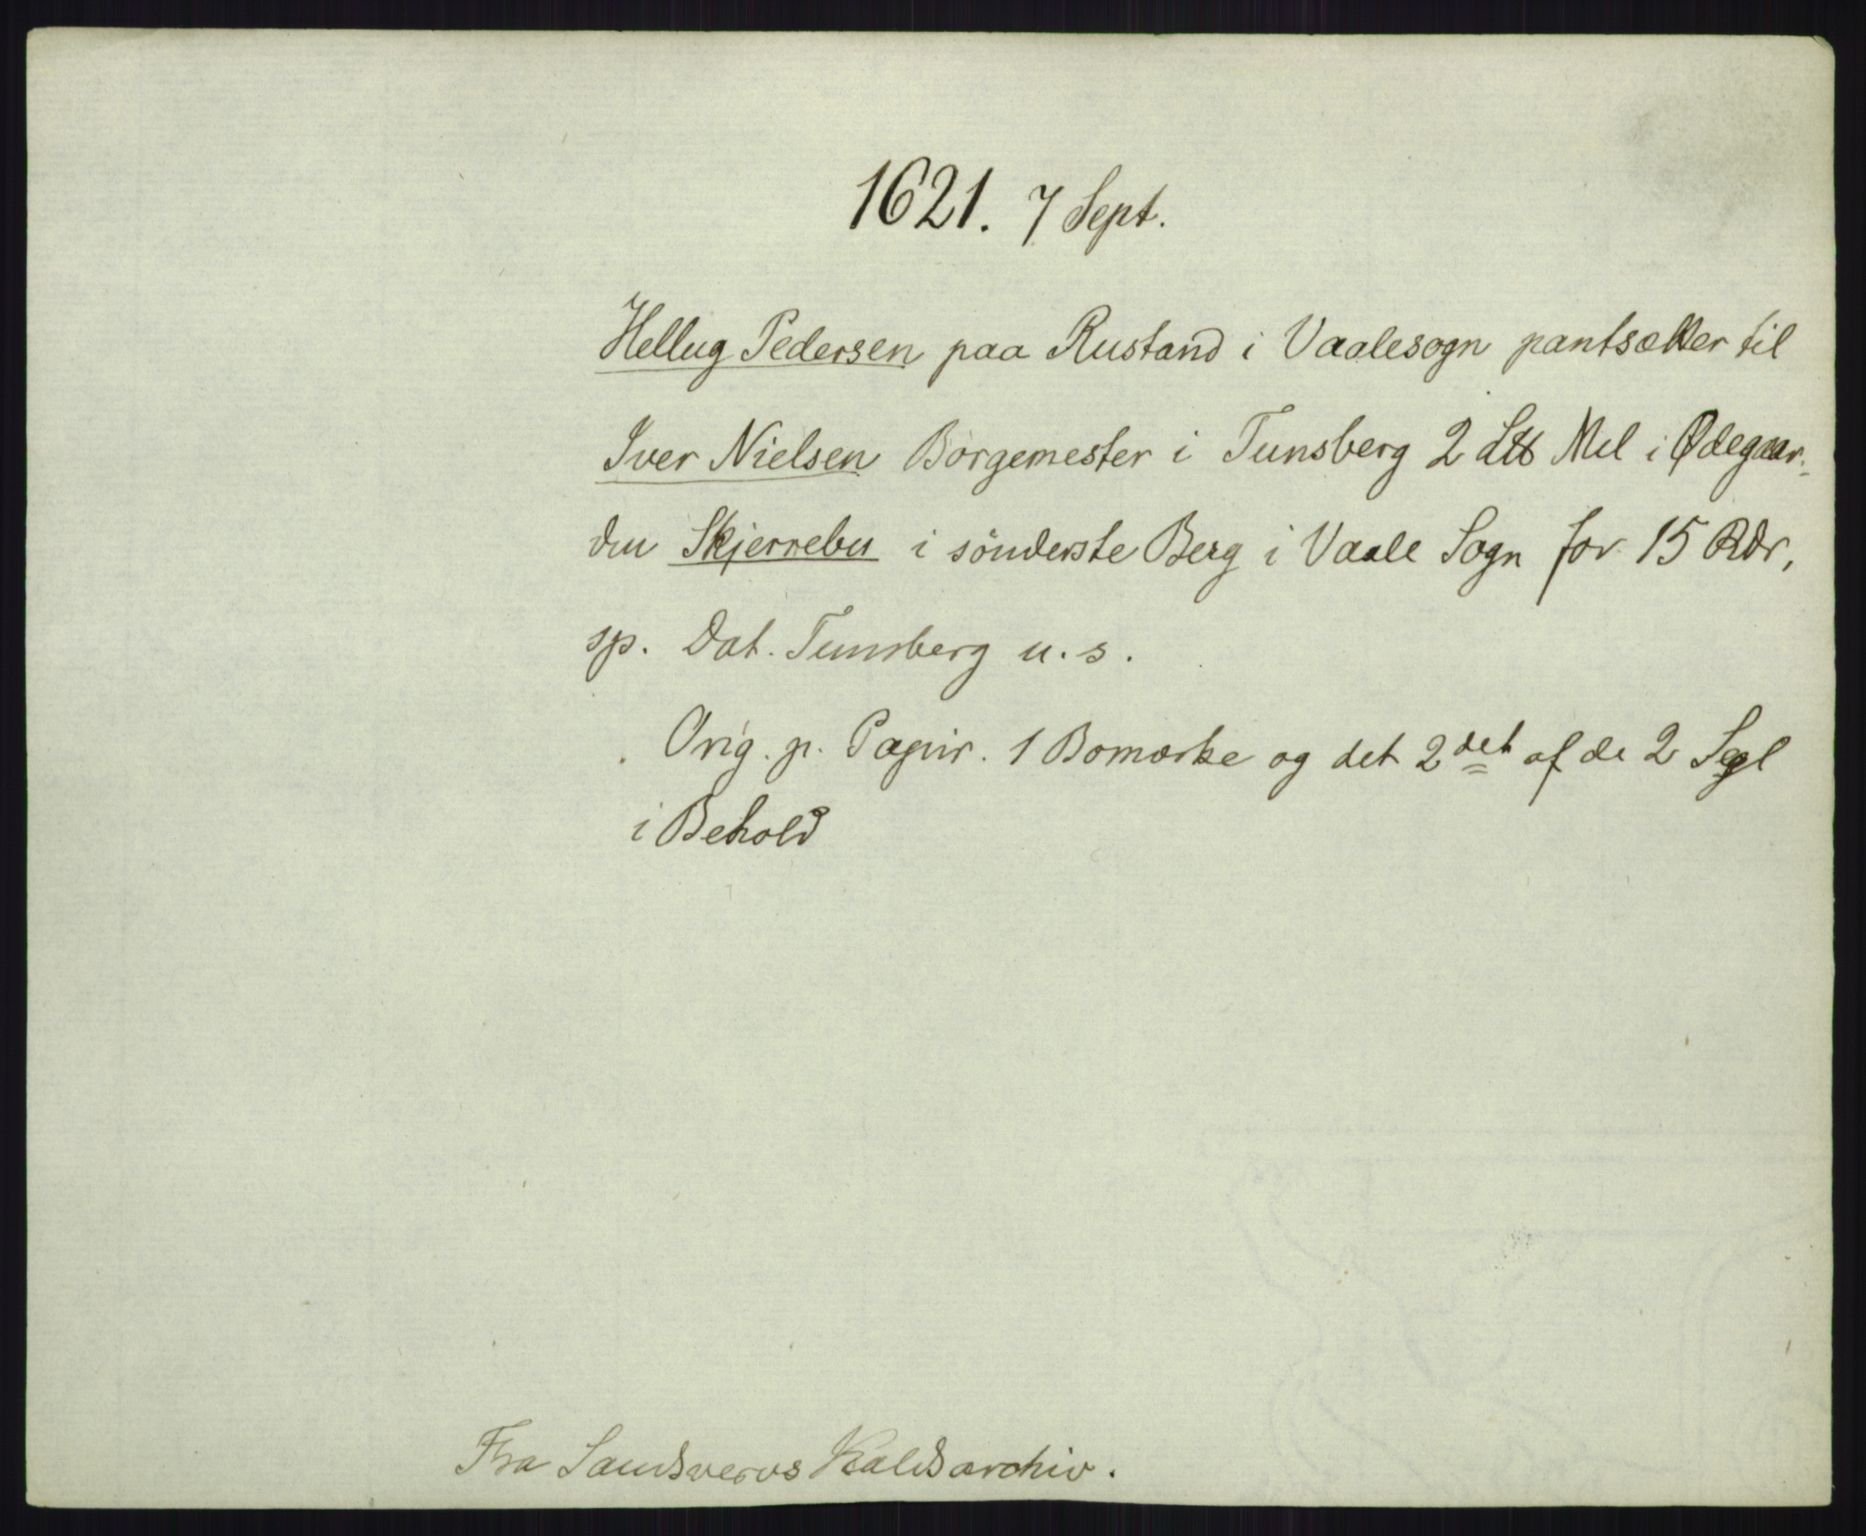 1621. 7 Sept.
Hellug Pedersen paa Rustand i Vaalesogn pantsætter til
Iver Nielsen Borgemester i Tunsberg 2 L℔ Mel i Ødegaar-
den Skjerrebu i sönderste Berg i Vaale Sogn for 15 Rdr,
sp. Dat. Tunsberg u. s.
Orig. p. Papir. 1 Bomærke og det 2det af de 2 Segl
i Behold
Fra Sandsværvs Kaldsarchiv.